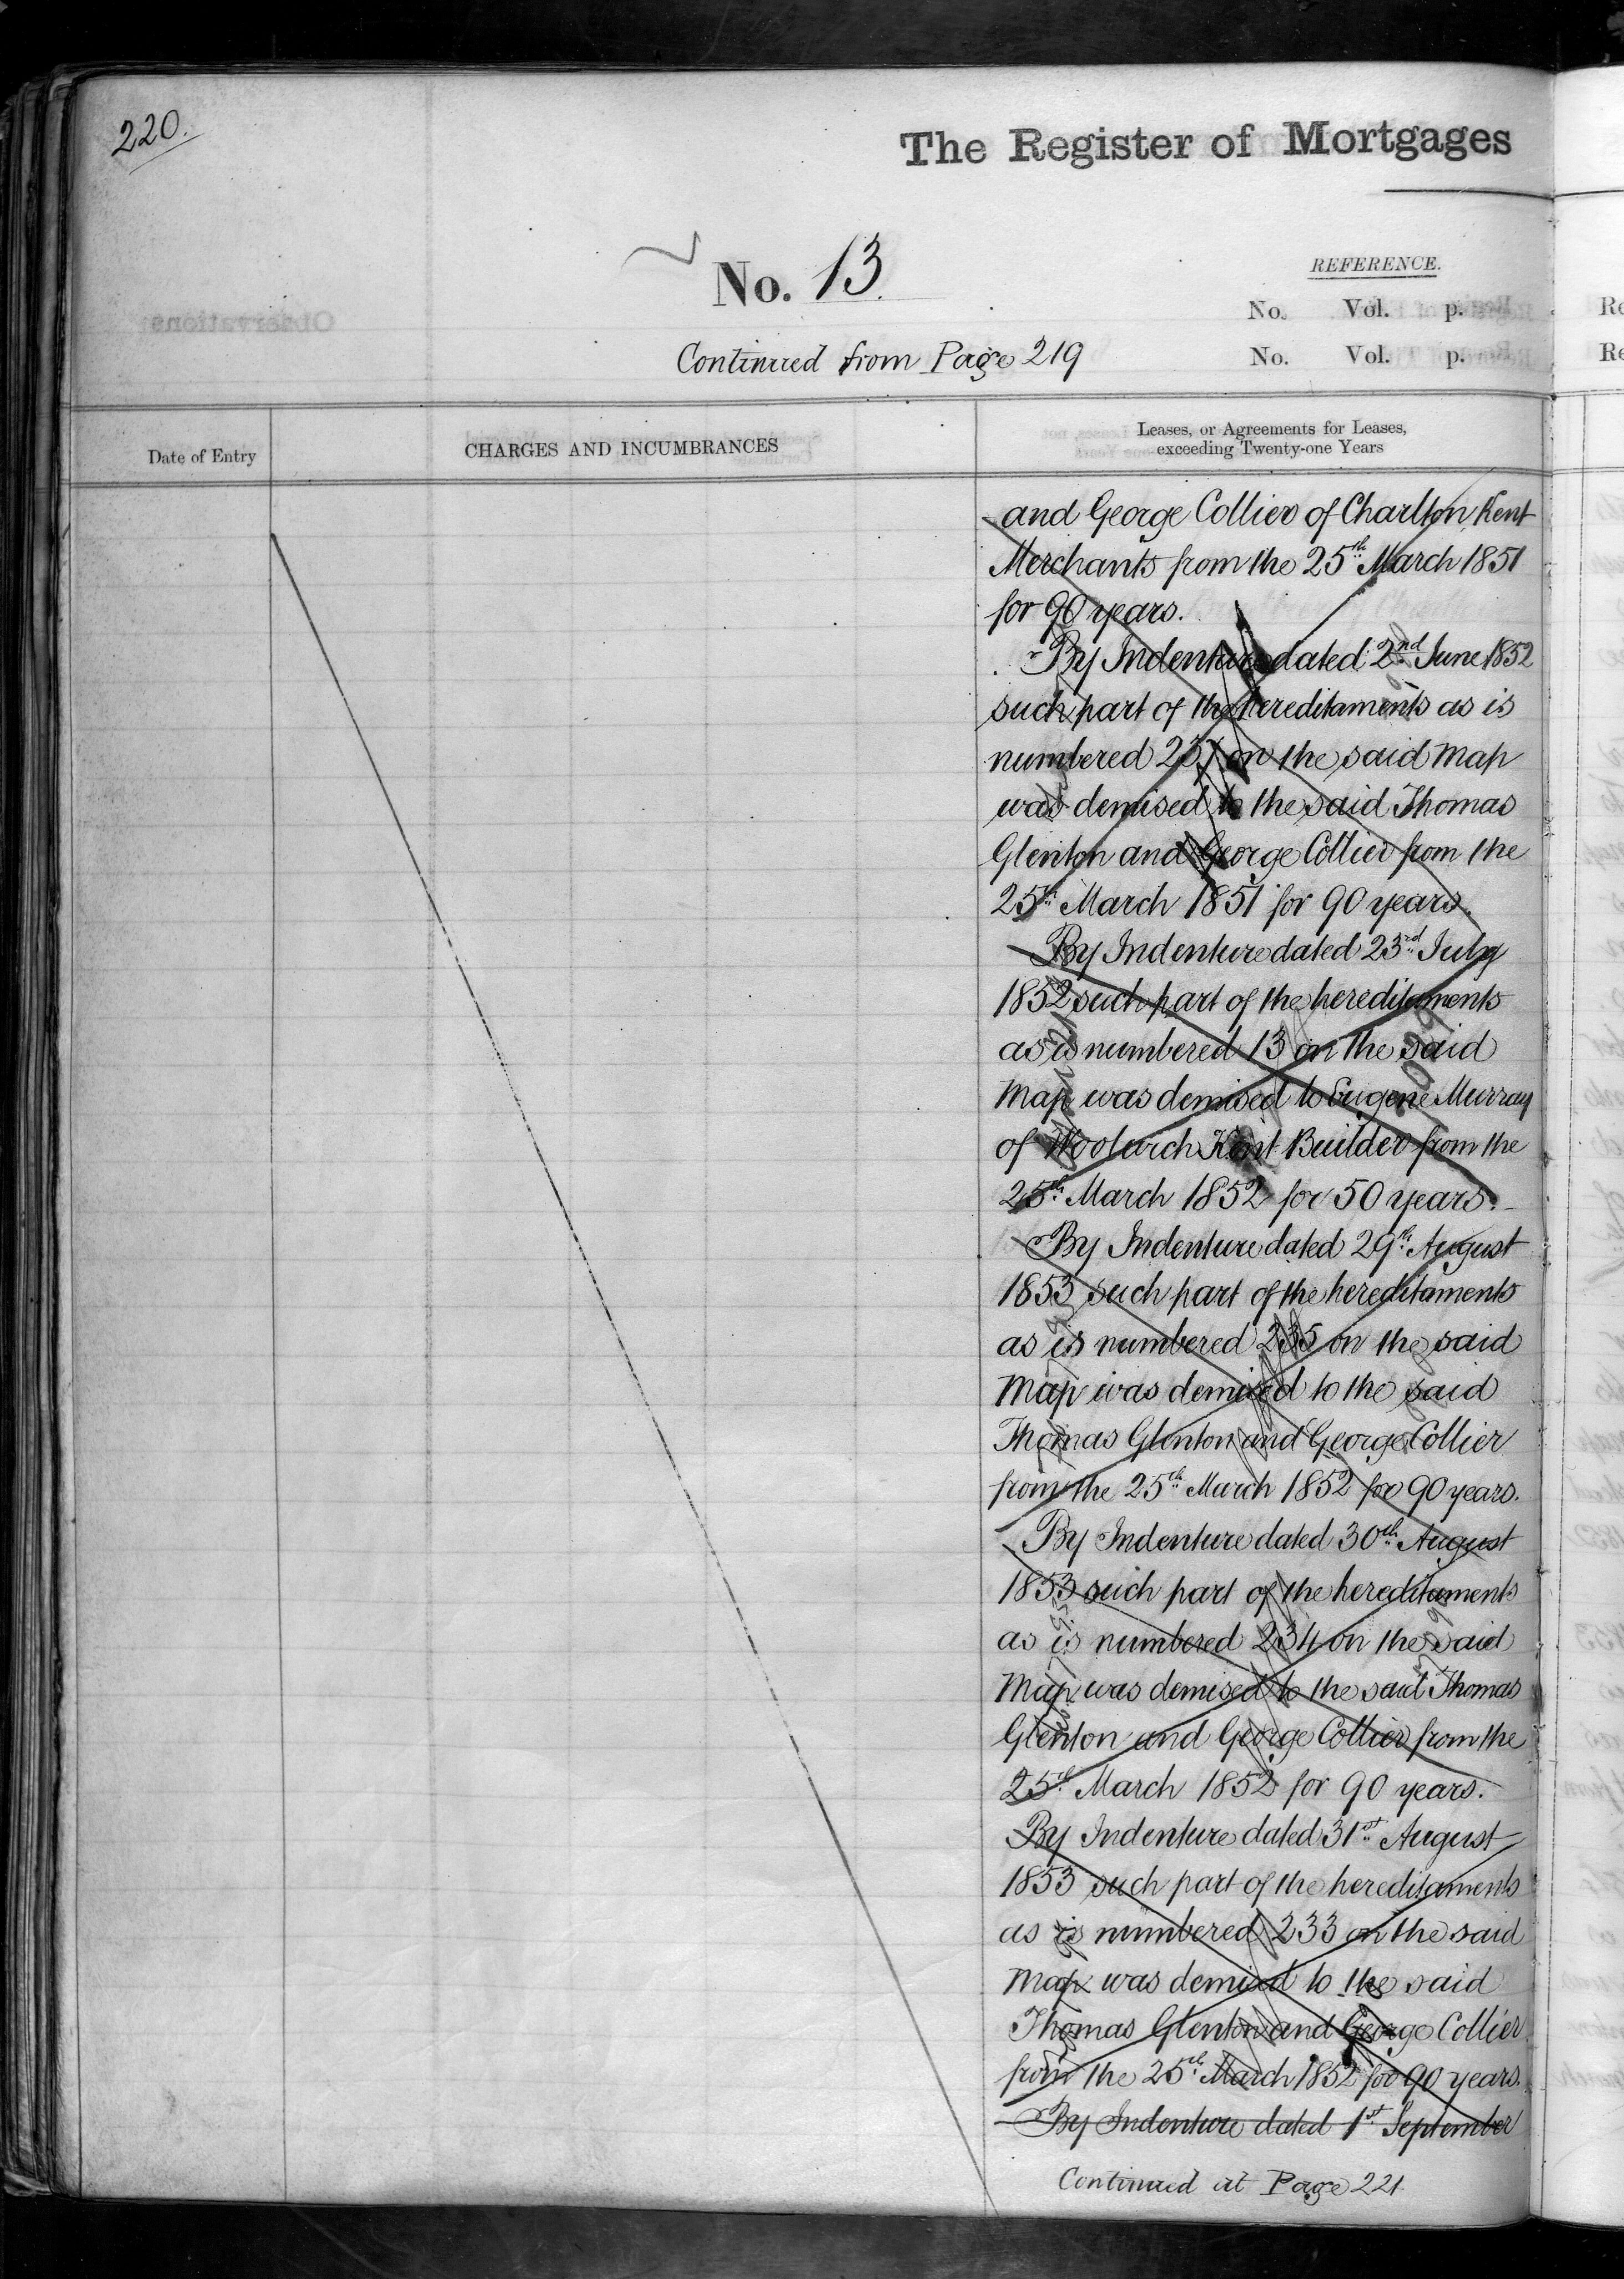 220.
The Register of Mortgages
No. 13.
REFERENCE.
No. Vol. p.
Continued from Page 219
No. Vol. p.
Date of Entry
CHARGES AND INCUMBRANCES
Leases, or Agreements for Leases,
exceeding Twenty-one Years
and George Collier of Charlton Kent
Merchants from the 25th March 1851
for 90 years.
By Indenture dated 2nd June 1852
such part of the hereditaments as is
numbered 237 on the said Map
was demised to the said Thomas
Glenton and George Collier from the
25th March 1851 for 90 years.
By Indenture dated 23rd July
1852 such part of the hereditaments
as is numbered 13 on the said
Map was demised to Eugene Murray
of Woolwich Kent Builder from the
25th March 1852 for 50 years.
By Indenture dated 29th August
1853 such part of the hereditaments
as is numbered 235 on the said
Map was demised to the said
Thomas Glenton and George Collier
from the 25th March 1852 for 90 years.
By Indenture dated 30th August
1853 such part of the hereditaments
as is numbered 234 on the said
Map was demised to the said Thomas
Glenton and George Collier from the
25th March 1852 for 90 years.
By Indenture dated 31st August
1853 such part of the hereditaments
as is numbered 233 on the said
Map was demised to the said
Thomas Glenton and George Collier
from the 25th March 1852 for 90 years.
By Indenture dated 1st September
Continued at Page 221